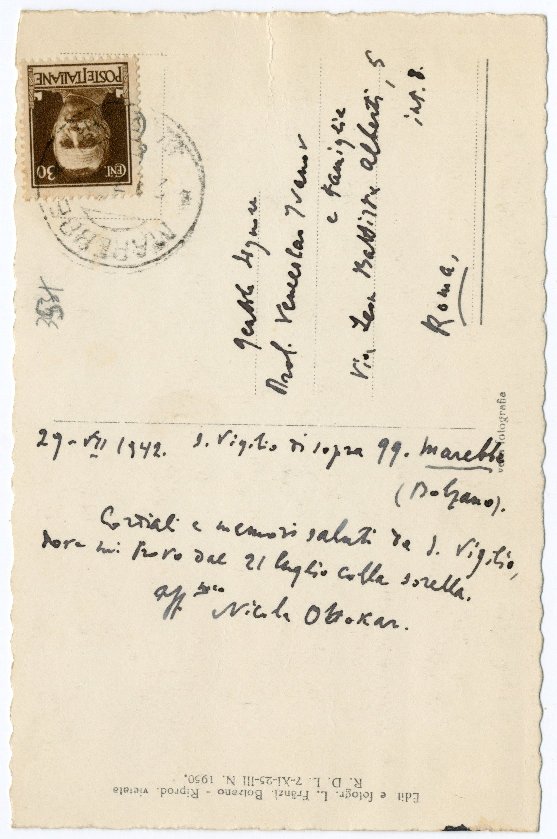 POSTE ITALIANE
CENT. 30
MAREBBE
3537
Gentile Signore
Prof. Venceslao Ivanov
e famiglia
Via Leon Battista Alberti, 5
int. 8.
Roma,
vera fotografia
29-VII 1942. S. Vigilio di sopra 99. Marebbe
(Bolzano).
Cordiali e memori saluti da S. Vigilio,
dove mi trovo dal 21 luglio colla sorella.
aff.mo
Nicola Ottokar.
Edit e fotogr. L. Fränzl. Bolzano - Riprod. vietata
R. D. L. 7-XI-25-III N. 1950.